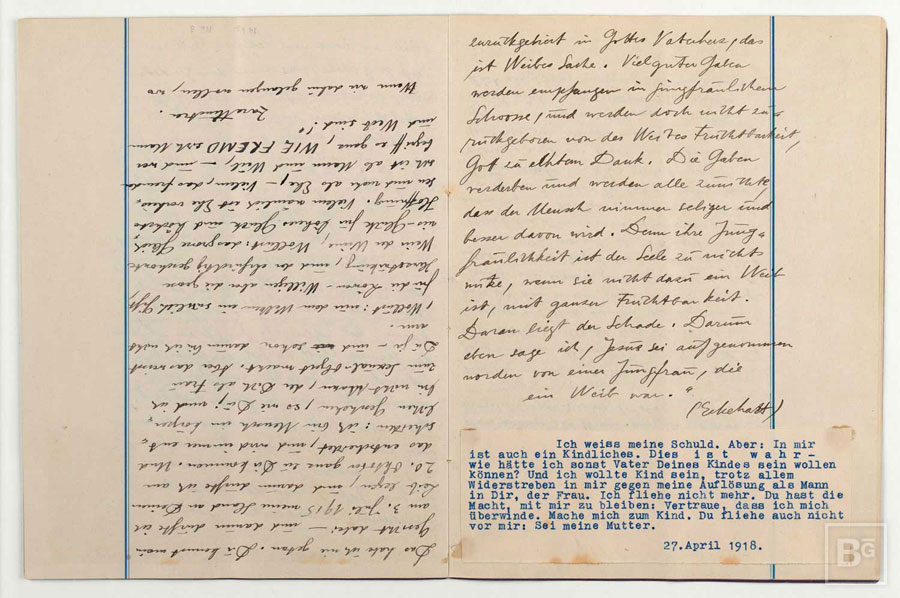 Das habe ich nie getan. Du kennst mein
Gesicht dabei. — und darum durfte ich
am 3. Juli 1915 meine Hand an Deinen
Leib legen, und darum durfte ich am
20. Oktober ganz zu Dir kommen. Und
das entscheidet, und wird immer ent-
scheiden: ich bin Mensch im Körper-
lichen Geschehen, so wie Du; und ich
bin nicht Mann, der Dich als Frau
zum Sexual-Objekt macht. Aber das warst
Du ja – und schon darum bin ich nicht
„Wollust: nur dem Welken ein süsslich Gift,
für die Löwen-Willigen aber die grosse
Herzstärkung, und der ehrfürchtig geschonte
Wein der Weine. Wollust: das grosse Gleich-
nis-Glück für höheres Glück und höchste
Hoffnung. Vielen nämlich ist Ehe verheis-
sen und mehr als Ehe, – Vielen, das fremder
sich ist als Mann und Weib, – und wer
begriff es ganz, WIE FREMD sich Mann
und Weib sind!"
Zarathustra.
Wenn wir dahin gelangen wollen, wo
zurückgebiert in Gottes Vaterherz, das
ist Weibes Sache. Viel guter Gaben
werden empfangen in jungfräulichem
Schoosse, und werden doch nicht zu-
rückgeboren von des Weibes Fruchtbarkeit,
Gott zu echtem Dank. Die Gaben
verderben und werden alle zunichte,
dass der Mensch nimmer seliger und
besser davon wird. Denn ihre Jung-
fräulichkeit ist der Seele zu nichts
nütze, wenn sie nicht dazu ein Weib
ist, mit ganzer Fruchtbarkeit.
Daran liegt der Schade. Darum
eben sage ich, Jesus sei aufgenommen
worden von einer Jungfrau, die
ein Weib war."
(Eckehart)
Ich weiss meine Schuld. Aber: In mir
ist auch ein Kindliches. Dies i s t w a h r -
wie hätte ich sonst Vater Deines Kindes sein wollen
können? Und ich wollte Kind sein, trotz allem
Widerstreben in mir gegen meine Auflösung als Mann
in Dir, der Frau. Ich fliehe nicht mehr. Du hast die
Macht, mit mir zu bleiben: Vertraue, dass ich mich
überwinde. Mache mich zum Kind. Du fliehe auch nicht
vor mir: Sei meine Mutter.
27.April 1918.
BG